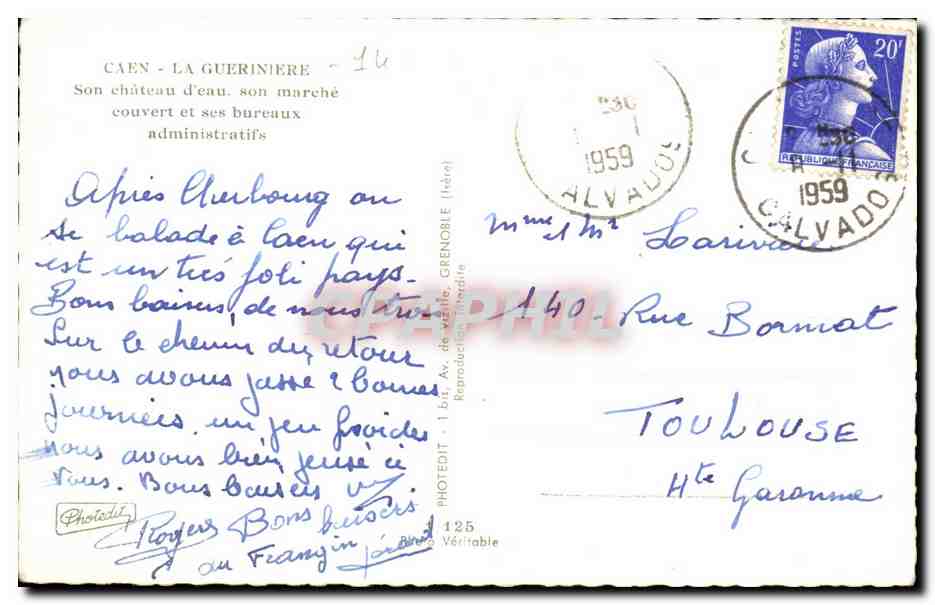 CAEN - LA GUERINIERE - 14
Son château d'eau, son marché
couvert et ses bureaux
administratifs
Après Cherbourg on
se balade à Caen qui
est un très joli pays.
Bons baisers de nous trois
Sur le chemin du retour
nous avons passé 2 bonnes
journées un peu froides
nous avons bien pensé à
vous. Bons baisers
Rogers Bons baisers
du Frangin Gérard
Photedit
PHOTEDIT - 1 bis, Av. de Vizille, GRENOBLE (Isère)
Reproduction interdite
125
Photo Véritable
CPAPHIL
1959
CALVADOS
POSTES
20F
REPUBLIQUE FRANÇAISE
1959
CALVADOS
Mme et Mr Larivière
140 - Rue Bonnat
TOULOUSE
Hte Garonne